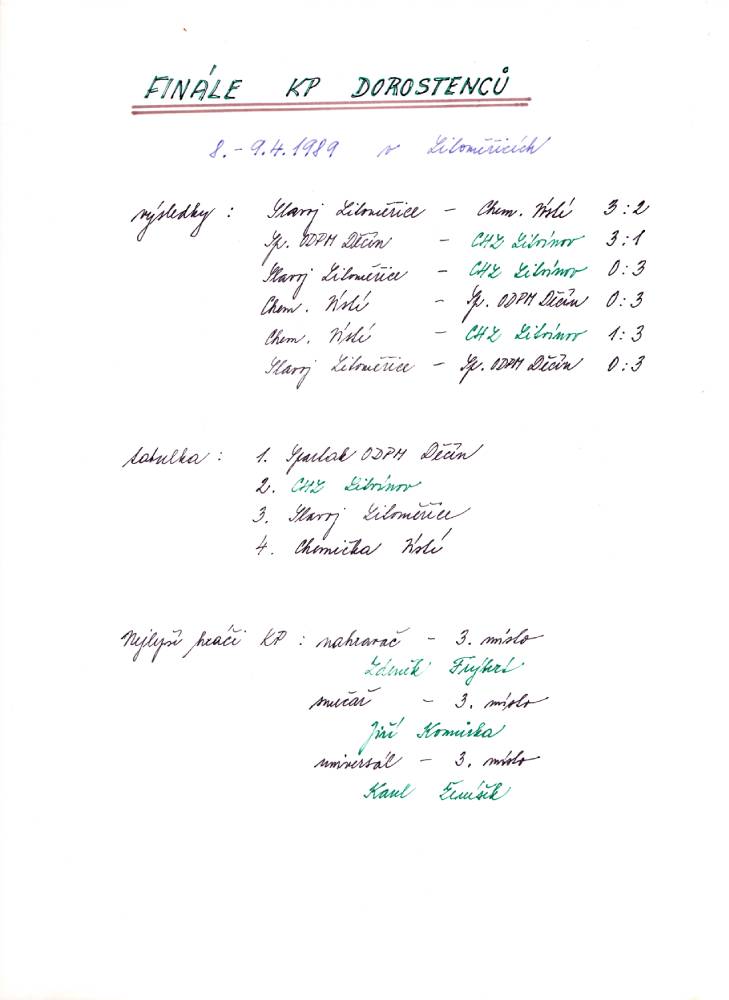 FINÁLE KP DOROSTENCŮ
8. - 9.4.1989 v Litoměřicích
výsledky : Slavoj Litoměřice - Chem. Ústí 3 : 2
Sp. ODPM Děčín - CHZ Litvínov 3 : 1
Slavoj Litoměřice - CHZ Litvínov 0 : 3
Chem. Ústí - Sp. ODPM Děčín 0 : 3
Chem. Ústí - CHZ Litvínov 1 : 3
Slavoj Litoměřice - Sp. ODPM Děčín 0 : 3
tabulka : 1. Spartak ODPM Děčín
2. CHZ Litvínov
3. Slavoj Litoměřice
4. Chemička Ústí
Nejlepší hráči KP : nahravač - 3. místo
Zdeněk Frýbert
smečař - 3. místo
Jiří
universál - 3. místo
Karel